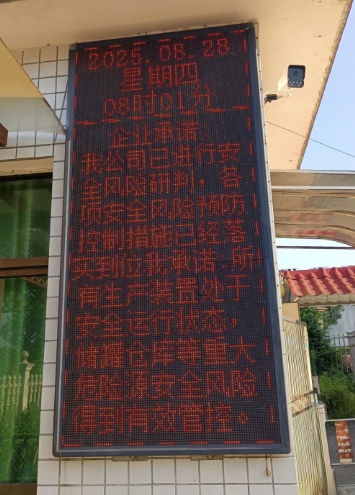 2025.08.28.
星期四
08时01分
企业承诺
我公司已进行安
全风险研判，各
项安全风险预防
控制措施已经落
实到位我承诺.所
有生产装置处于
安全运行状态，
储罐仓库等重大
危险源安全风险
得到有效管控。